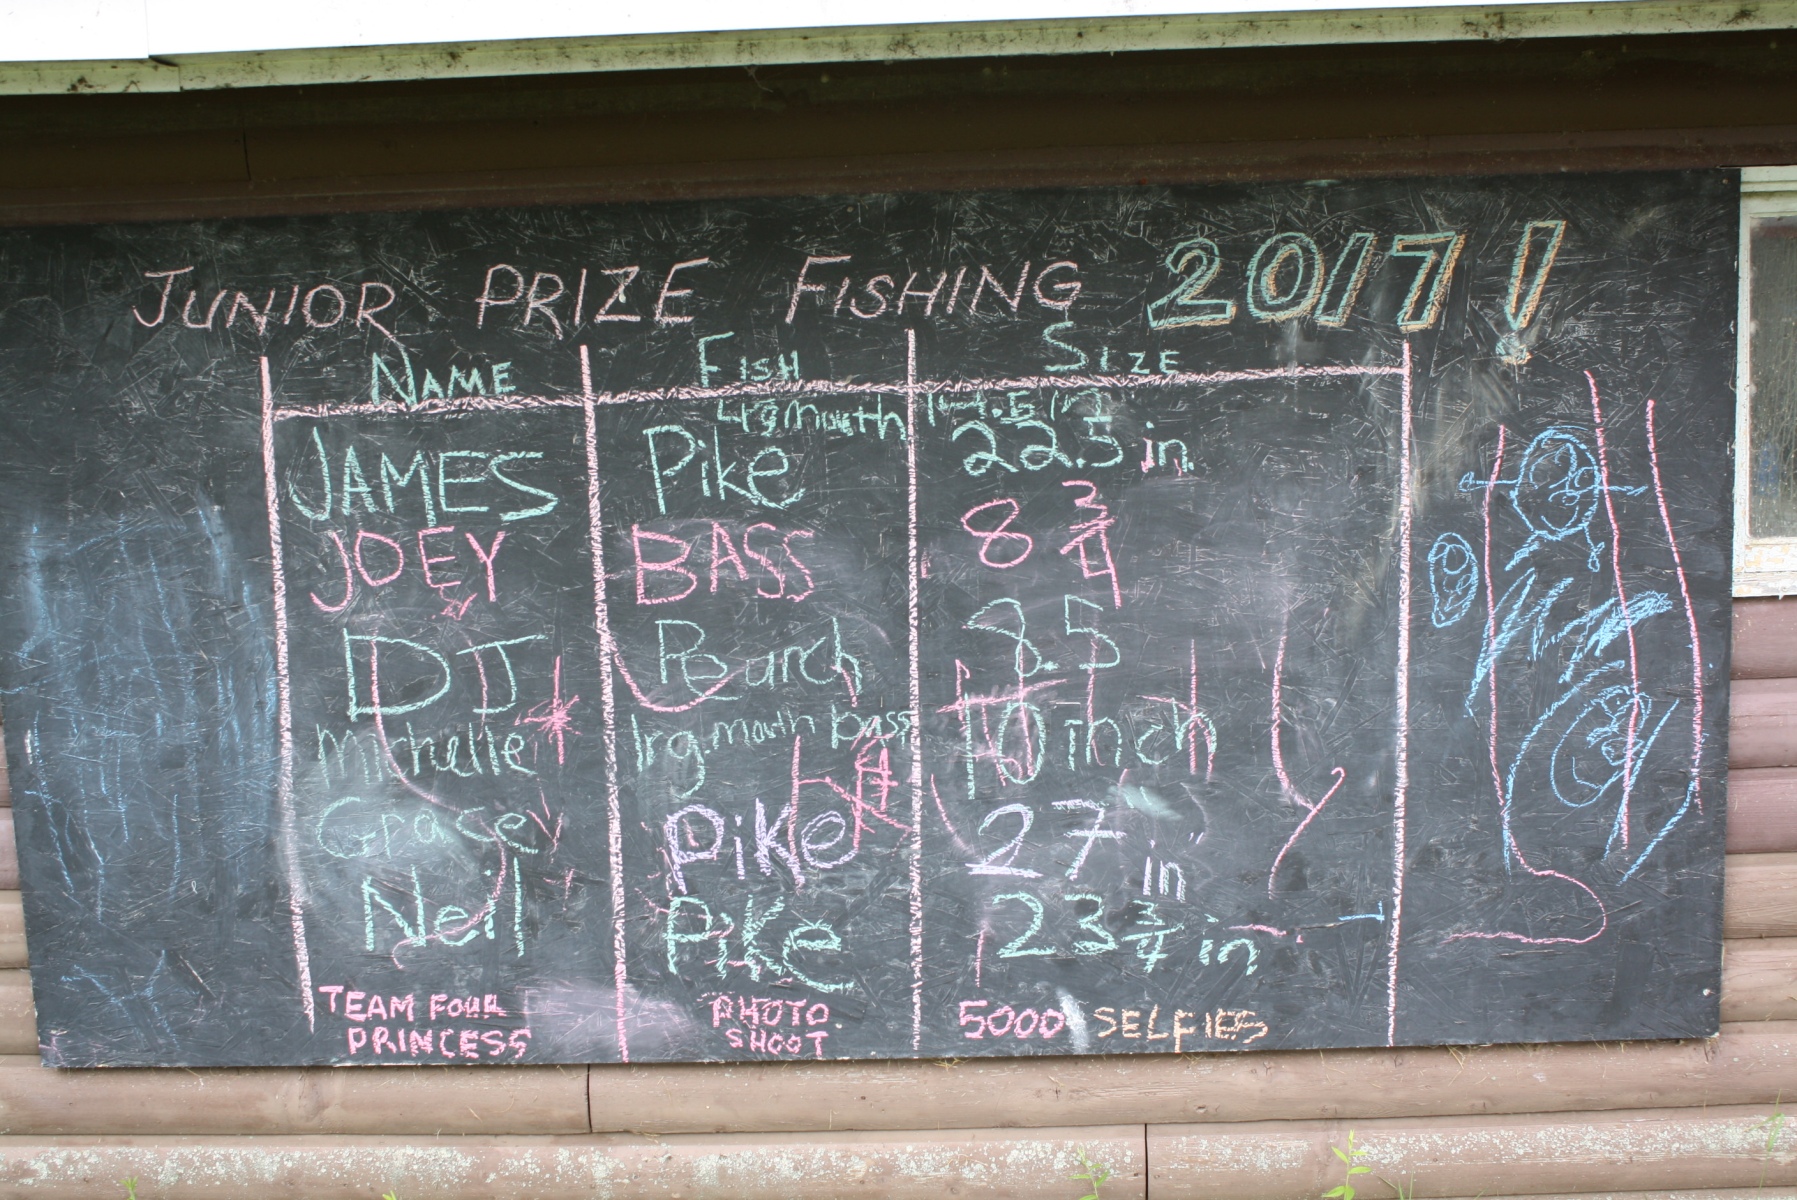 JUNIOR PRIZE FISHING 2017!
NAME FISH SIZE
Lrg mouth 14.5 in
JAMES Pike 22.5 in.
JOEY BASS 8 3/4
DJ Pearch 8.5
Michelle lrg. mouth bass 10 inch
Grace Pike 27 in"
Neil Pike 23 3/4 in
TEAM FOUR PHOTO 5000 SELFIES
PRINCESS SHOOT